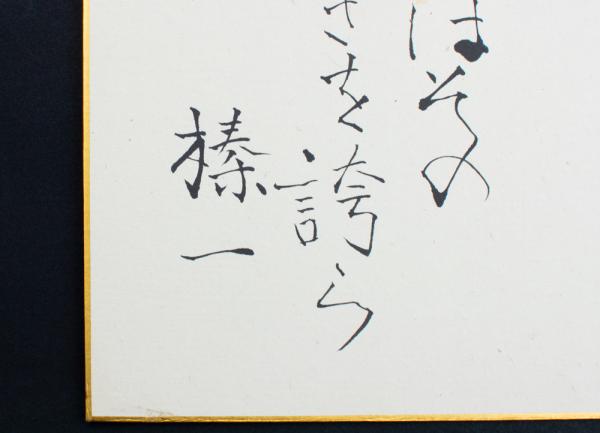 はその
さを誇ら
榛一